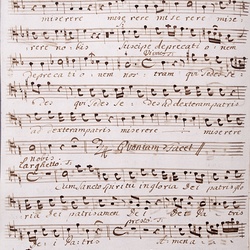 miserere miserere miserere mise
rere nobis Suscipe deprecationem
deprecationem nostram qui sedes se
des qui sedes sedes ad dexteram patris
ad dexteram patris miserere miserere
nobis Quoniam Tacet
Larghetto
Cum Sancto Spiritu in gloria dei patris glo
ria dei patris amen dei dei patris
presto
dei patris Amen a